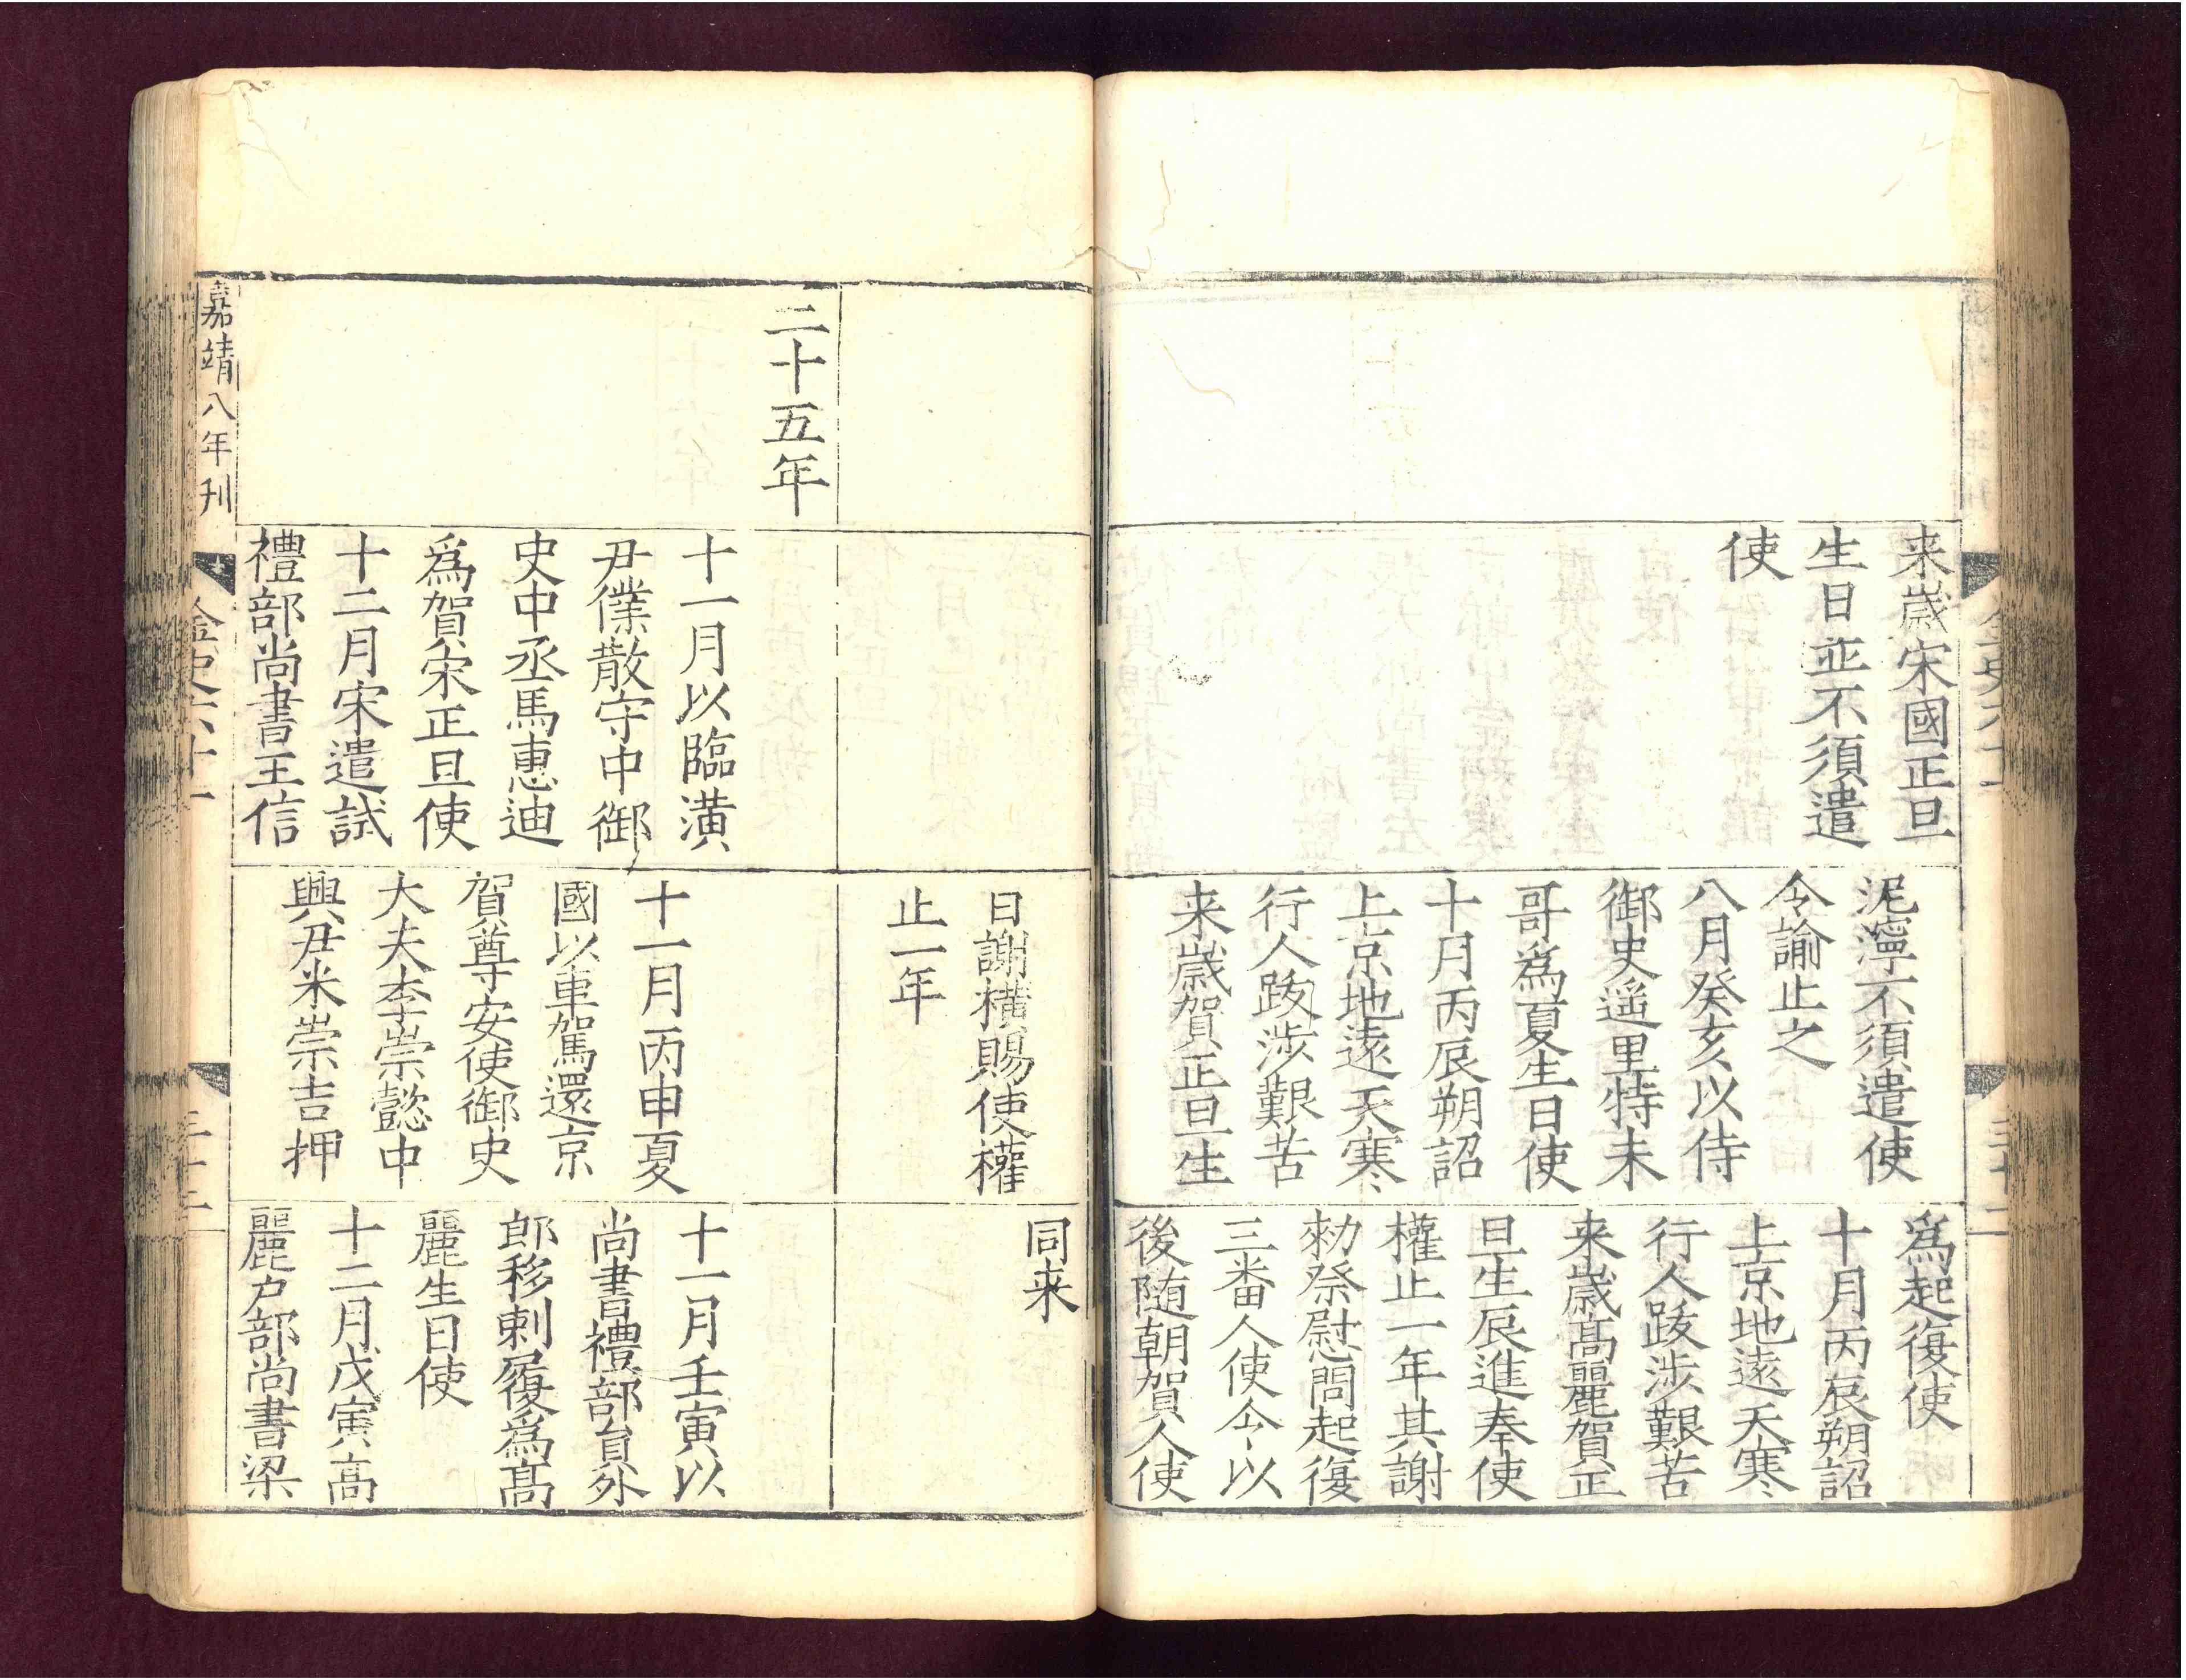 来歲宋國正旦
生日並不須遣
使
泥濘不須遣使
令諭止之
八月癸亥以侍
御史遥里特末
哥為夏生日使
十月丙辰朔詔
上京地遠天寒
行人跋涉艱苦
来歲賀正旦生
為起復使
十月丙辰朔詔
上京地遠天寒
行人跋涉艱苦
来歲髙麗賀正
旦生辰進奉使
權止一年其謝
勑祭慰問起復
三番人使令以
後随朝賀人使
日謝橫賜使權
止一年
同来
二十五年
十一月以臨潢
尹僕散守中御
史中丞馬惠迪
為賀宋正旦使
十二月宋遣試
禮部尚書王信
十一月丙申夏
國以車駕還京
賀尊安使御史
大夫李崇懿中
興尹米崇吉押
十一月壬寅以
尚書禮部員外
郎移剌履為髙
麗生日使
十二月戊寅高
麗戸部尚書梁
嘉靖八年刊
金史六十一
三十二